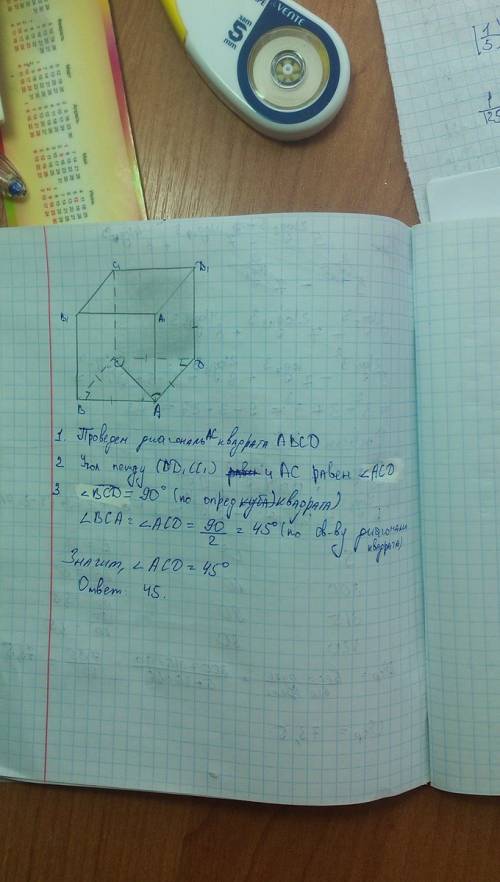 VENTE
5
mm
5m
1
5
1
125
C₁
D₁
B₁
A₁
C
D
B
A
1. Проведем диагональ AC квадрата ABCD
2 Угол между (DD₁CC₁) и AC равен ∠ACD
3 ∠BCD = 90° (по опред куба) квадрата)
∠BCA = ∠ACD = 90/2 = 45° (по св-ву диагонали
квадрата)
Значит, ∠ACD = 45°
Ответ 45.